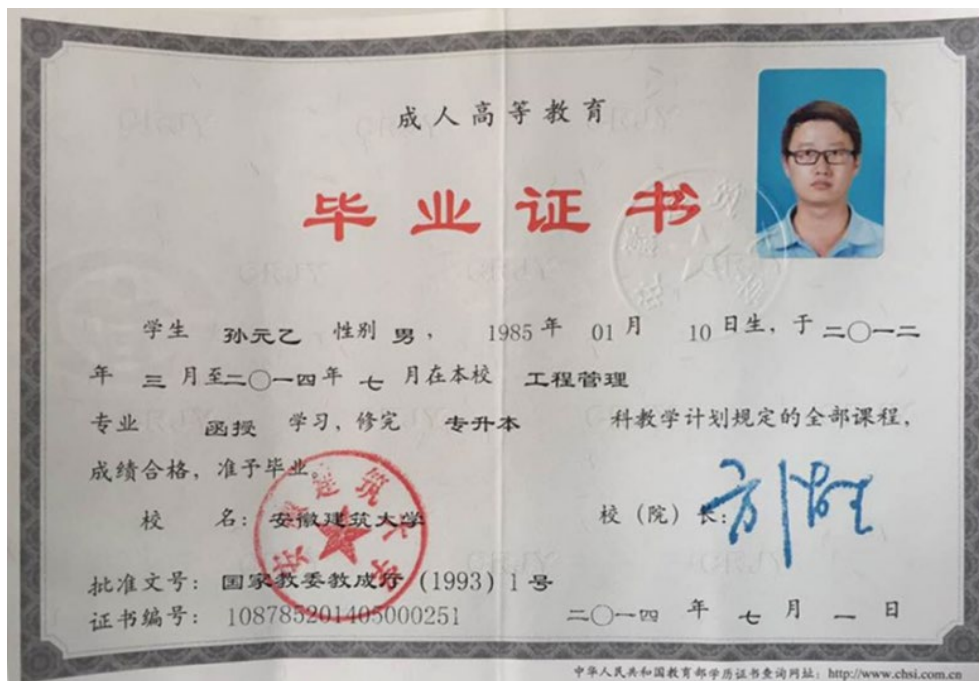 成人高等教育
毕业证书
学生 孙元乙 性别 男, 1985 年 01 月 10 日生, 于 二〇一二
年 三 月至二〇一四年 七 月在本校 工程管理
专业 函授 学习, 修完 专升本 科教学计划规定的全部课程,
成绩合格, 准予毕业。
校 名: 安徽建筑大学 校 (院) 长:
批准文号: 国家教委教成厅 (1993) 1 号
证书编号: 108785201405000251
二〇一四 年 七 月 一 日
中华人民共和国教育部学历证书查询网址: http://www.chsi.com.cn